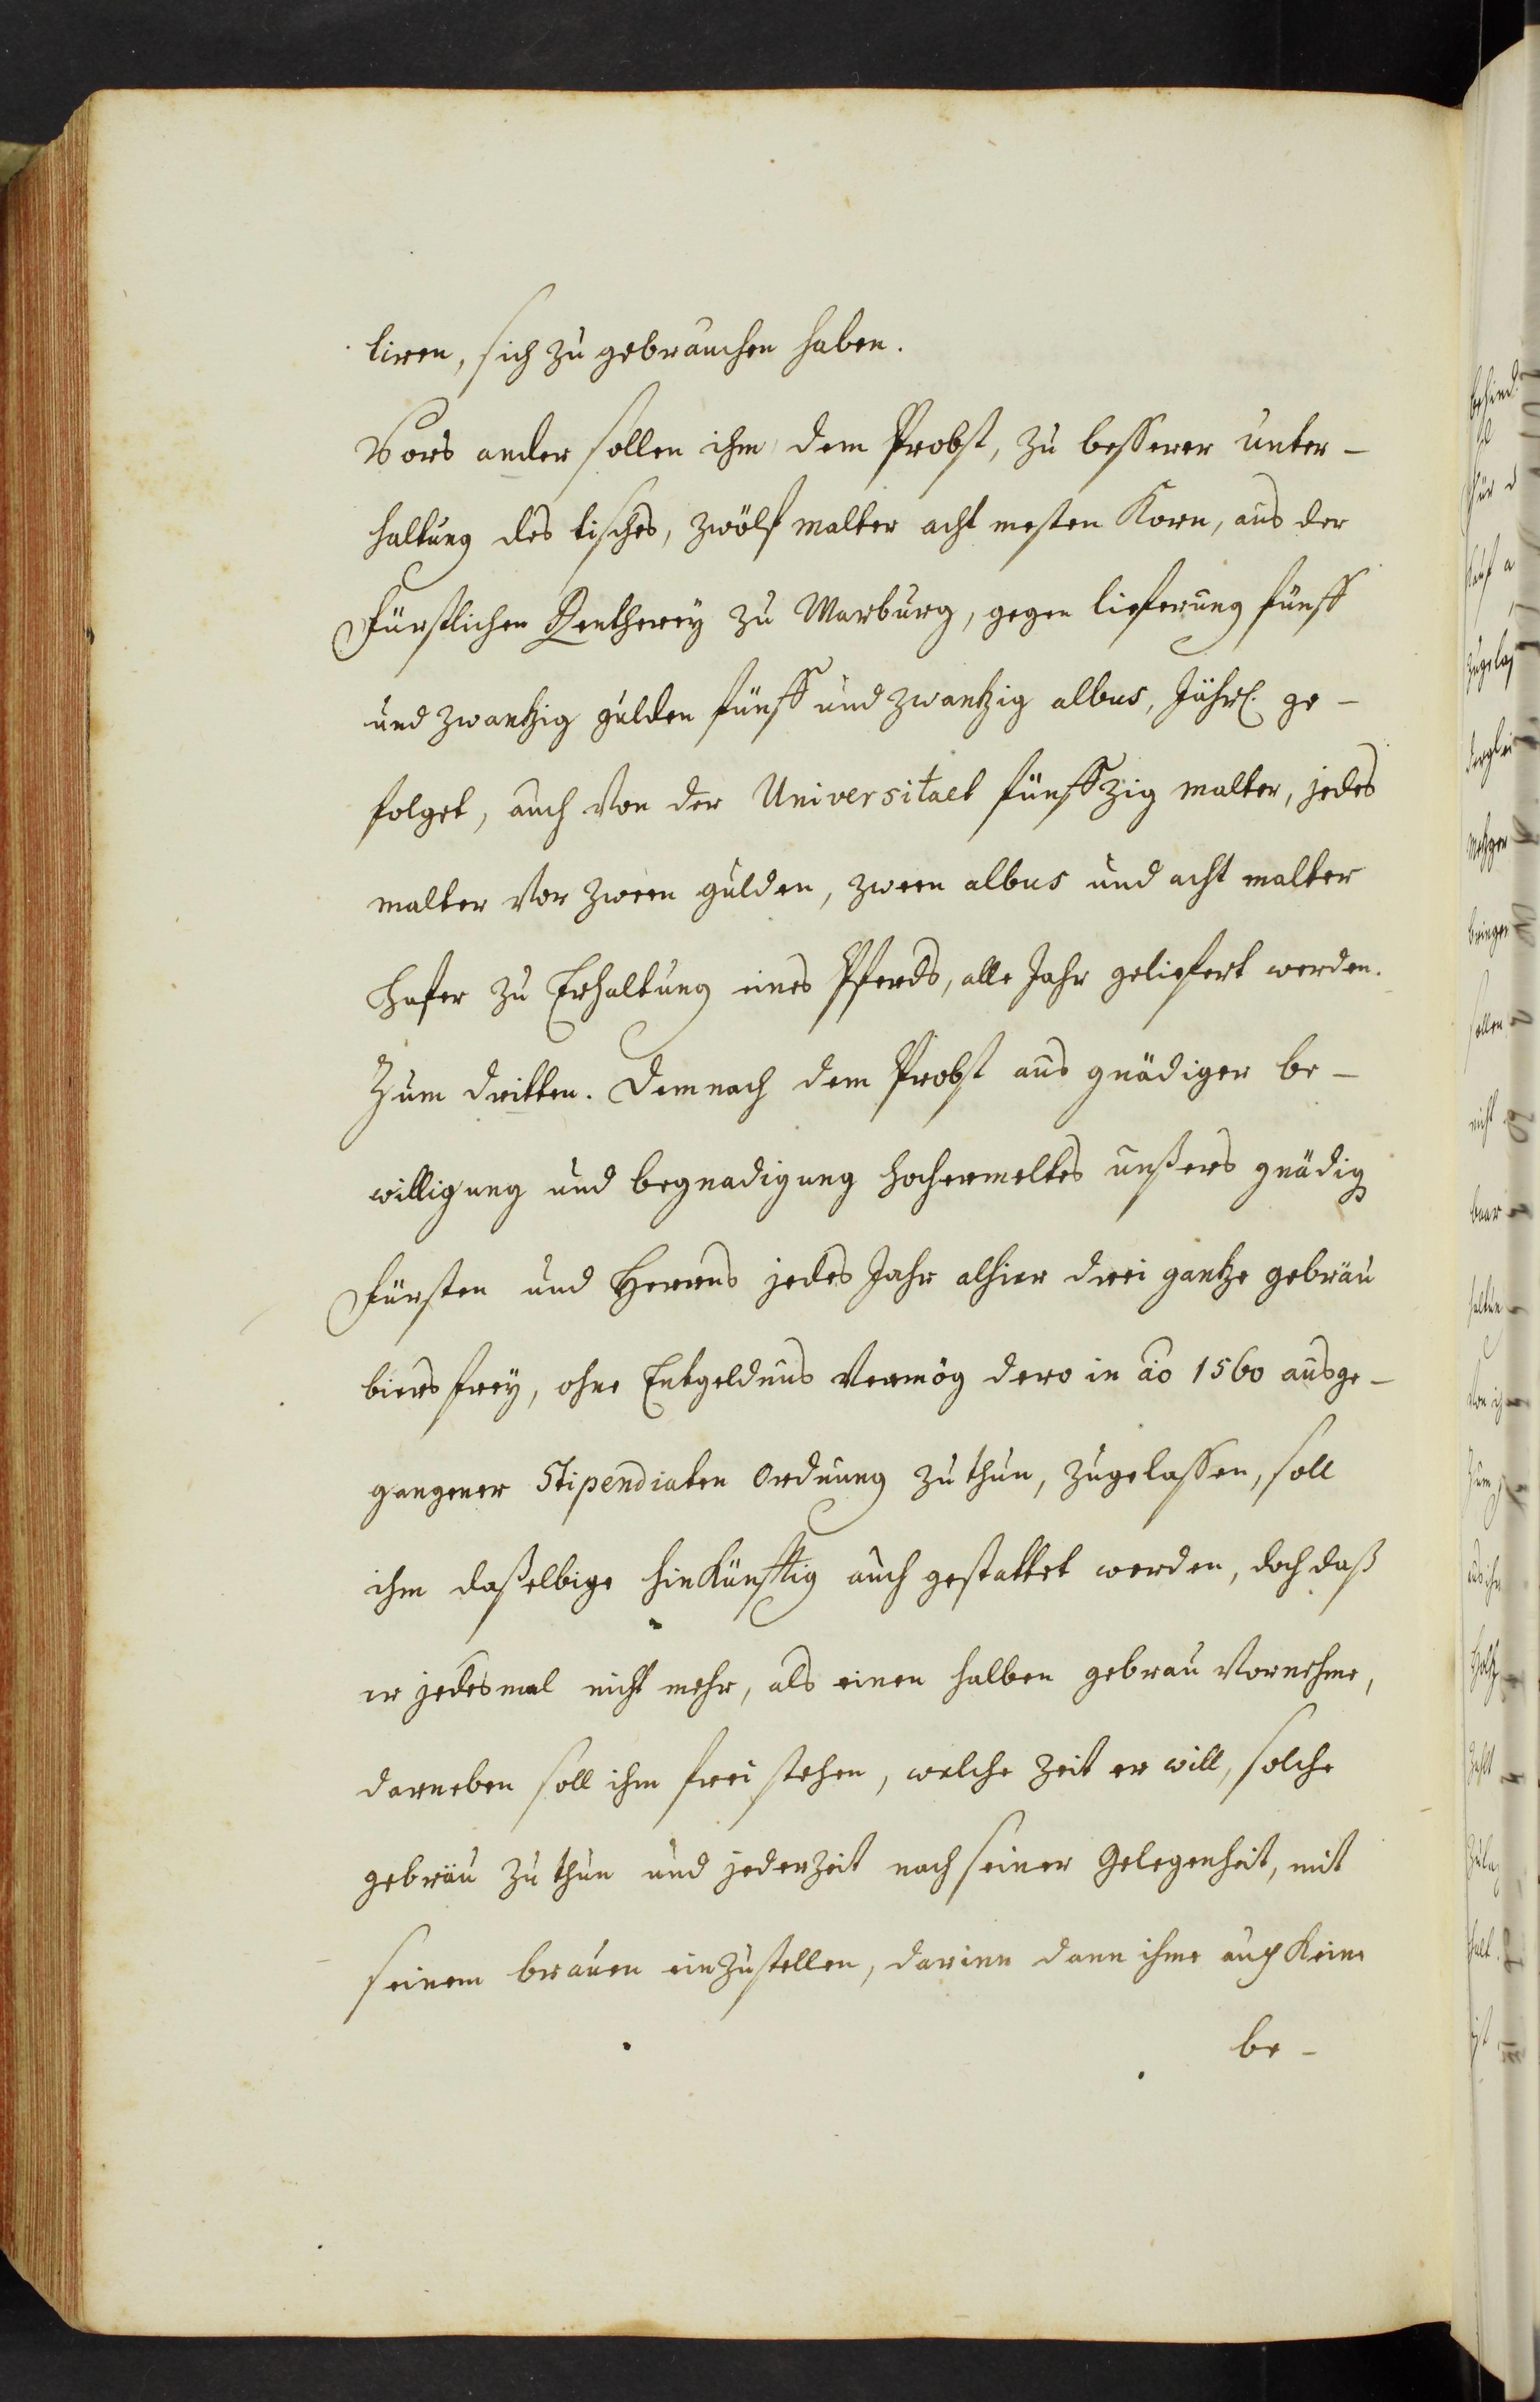 tiren, sich zu gebrauchen haben.
Vors ander sollen ihm dem Probst, zu besserer unter-
haltung des tisches, zwölf malter acht mesten Korn, aus der
Fürstlichen Rentherey zu Marburg, gegen lieferung fünff
und zwantzig gulden fünff und zwantzig albus, Jährl. ge-
folget, auch von der Universitaet fünffzig malter, jedes
malter vor zween gulden, zween albus und acht malter
Hafer zu Erhaltung eines Pferds, alle Jahr geliefert werden.
Zum dritten. Demnach dem Probst aus gnädiger be-
willigung und begnadigung hochermeltes unßers gnädig
Fürsten und Herrns jedes Jahr alhier drei gantze gebräu
biers frey, ohne Entgeldnus vermög dero in ao 1560 ausge-
gangener Stipendiaten Ordnung zu thun, zugelassen, soll
ihm daßelbige hinkünfftig auch gestattet werden, doch daß
er jedesmal nicht mehr, als einen halben gebräu vornehme,
darneben soll ihm frei stehen, welche Zeit er will, solche
gebräu zu thun und jederzeit nach seiner Gelegenheit, mit
seinem brauen einzustellen, darinn dann ihme auch keine
be-